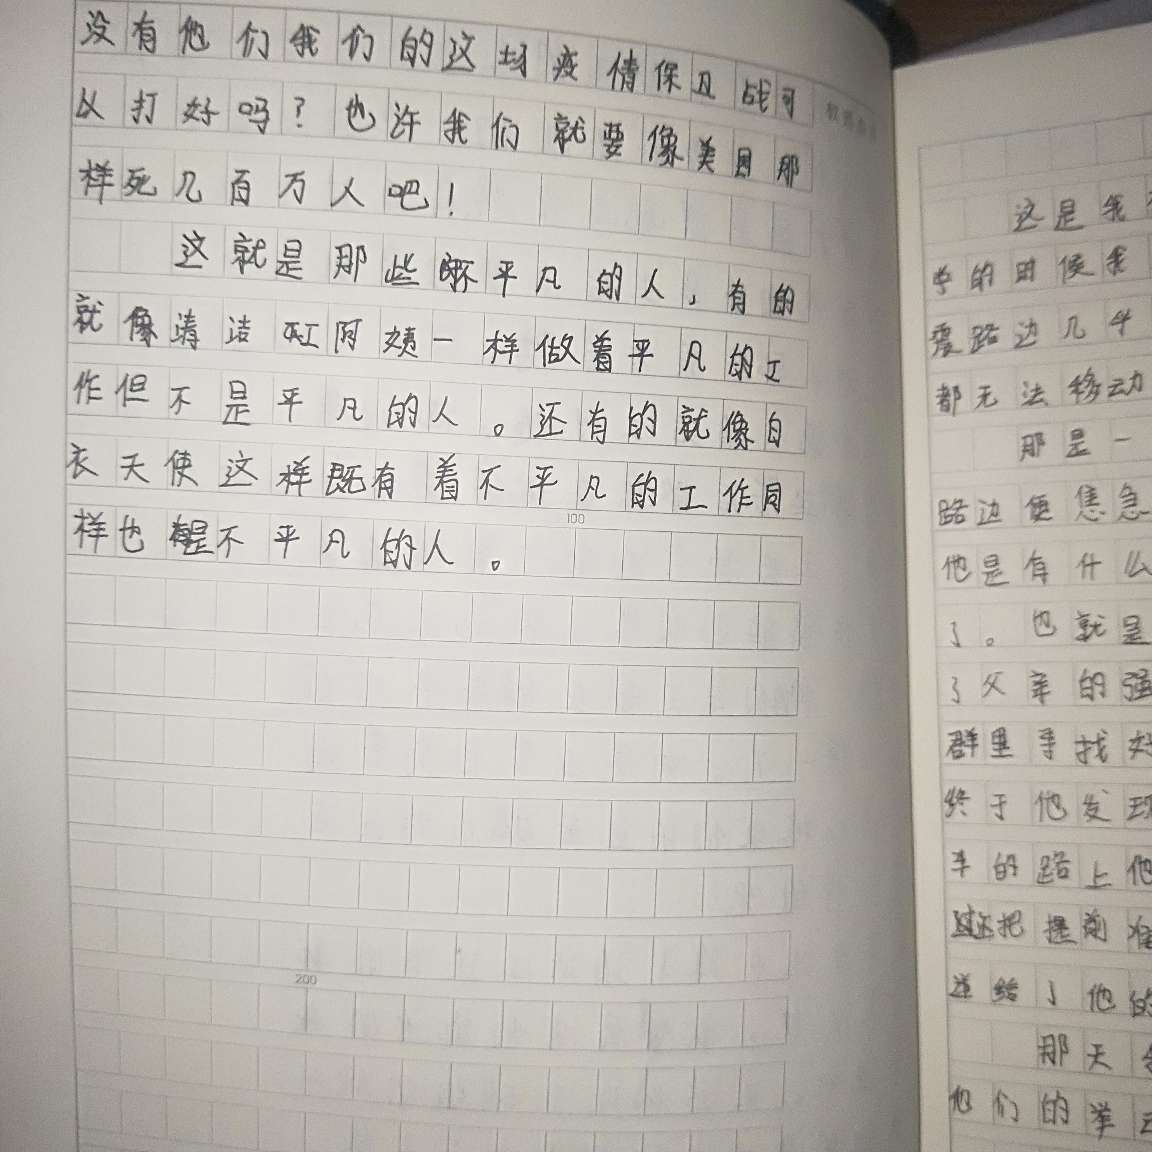 没有他们我们的这场疫情保卫战可
以打好吗？也许我们就要像美国那
样死几百万人吧！
这就是那些不平凡的人，有的
就像清洁工阿姨一样做着平凡的工
作但不是平凡的人。还有的就像白
衣天使这样既有着不平凡的工作同
样也是不平凡的人。
100
200
这是我
学的时候我
震路边几
都无法移动
那是一
路边便焦急
他是有什么
了。也就是
了父亲的强
群里寻找好
终于他发现
车的路上他
过还把提前准
送给了他的
那天
他们的举动